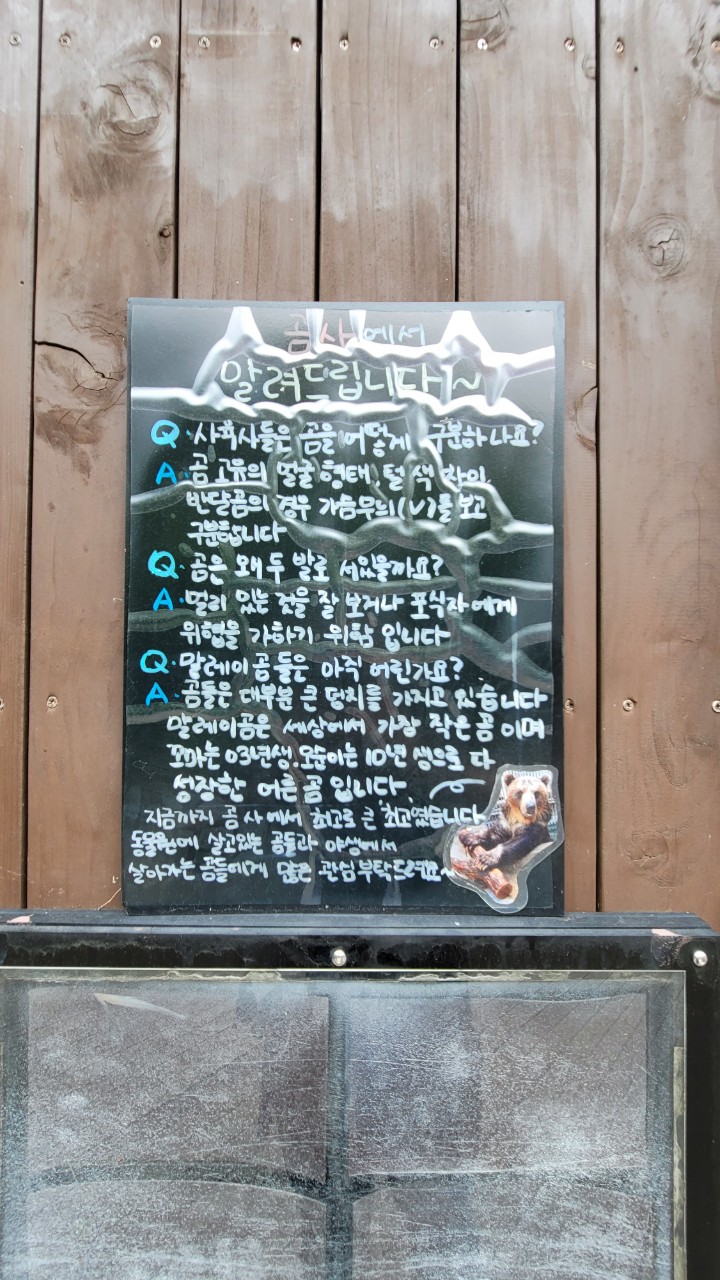 곰사에서
알려드립니다!~
Q. 사육사들은 곰을 어떻게 구분하나요?
A. 곰 고유의 얼굴 형태, 털 색 차이,
반달곰의 경우 가슴무늬(V)를 보고
구분합니다
Q. 곰은 왜 두 발로 서있을까요?
A. 멀리 있는 것을 잘 보거나 포식자에게
위협을 가하기 위함 입니다
Q. 말레이곰들은 아직 어린가요?
A. 곰들은 대부분 큰 덩치를 가지고 있습니다
말레이곰은 세상에서 가장 작은 곰 이며
꼬마는 03년생, 오순이는 10년 생으로 다
성장한 어른곰 입니다
지금까지 곰사에서 최고로 큰 '최고'였습니다
동물원에 살고있는 곰들과 야생에서
살아가는 곰들에게 많은 관심 부탁드려요~